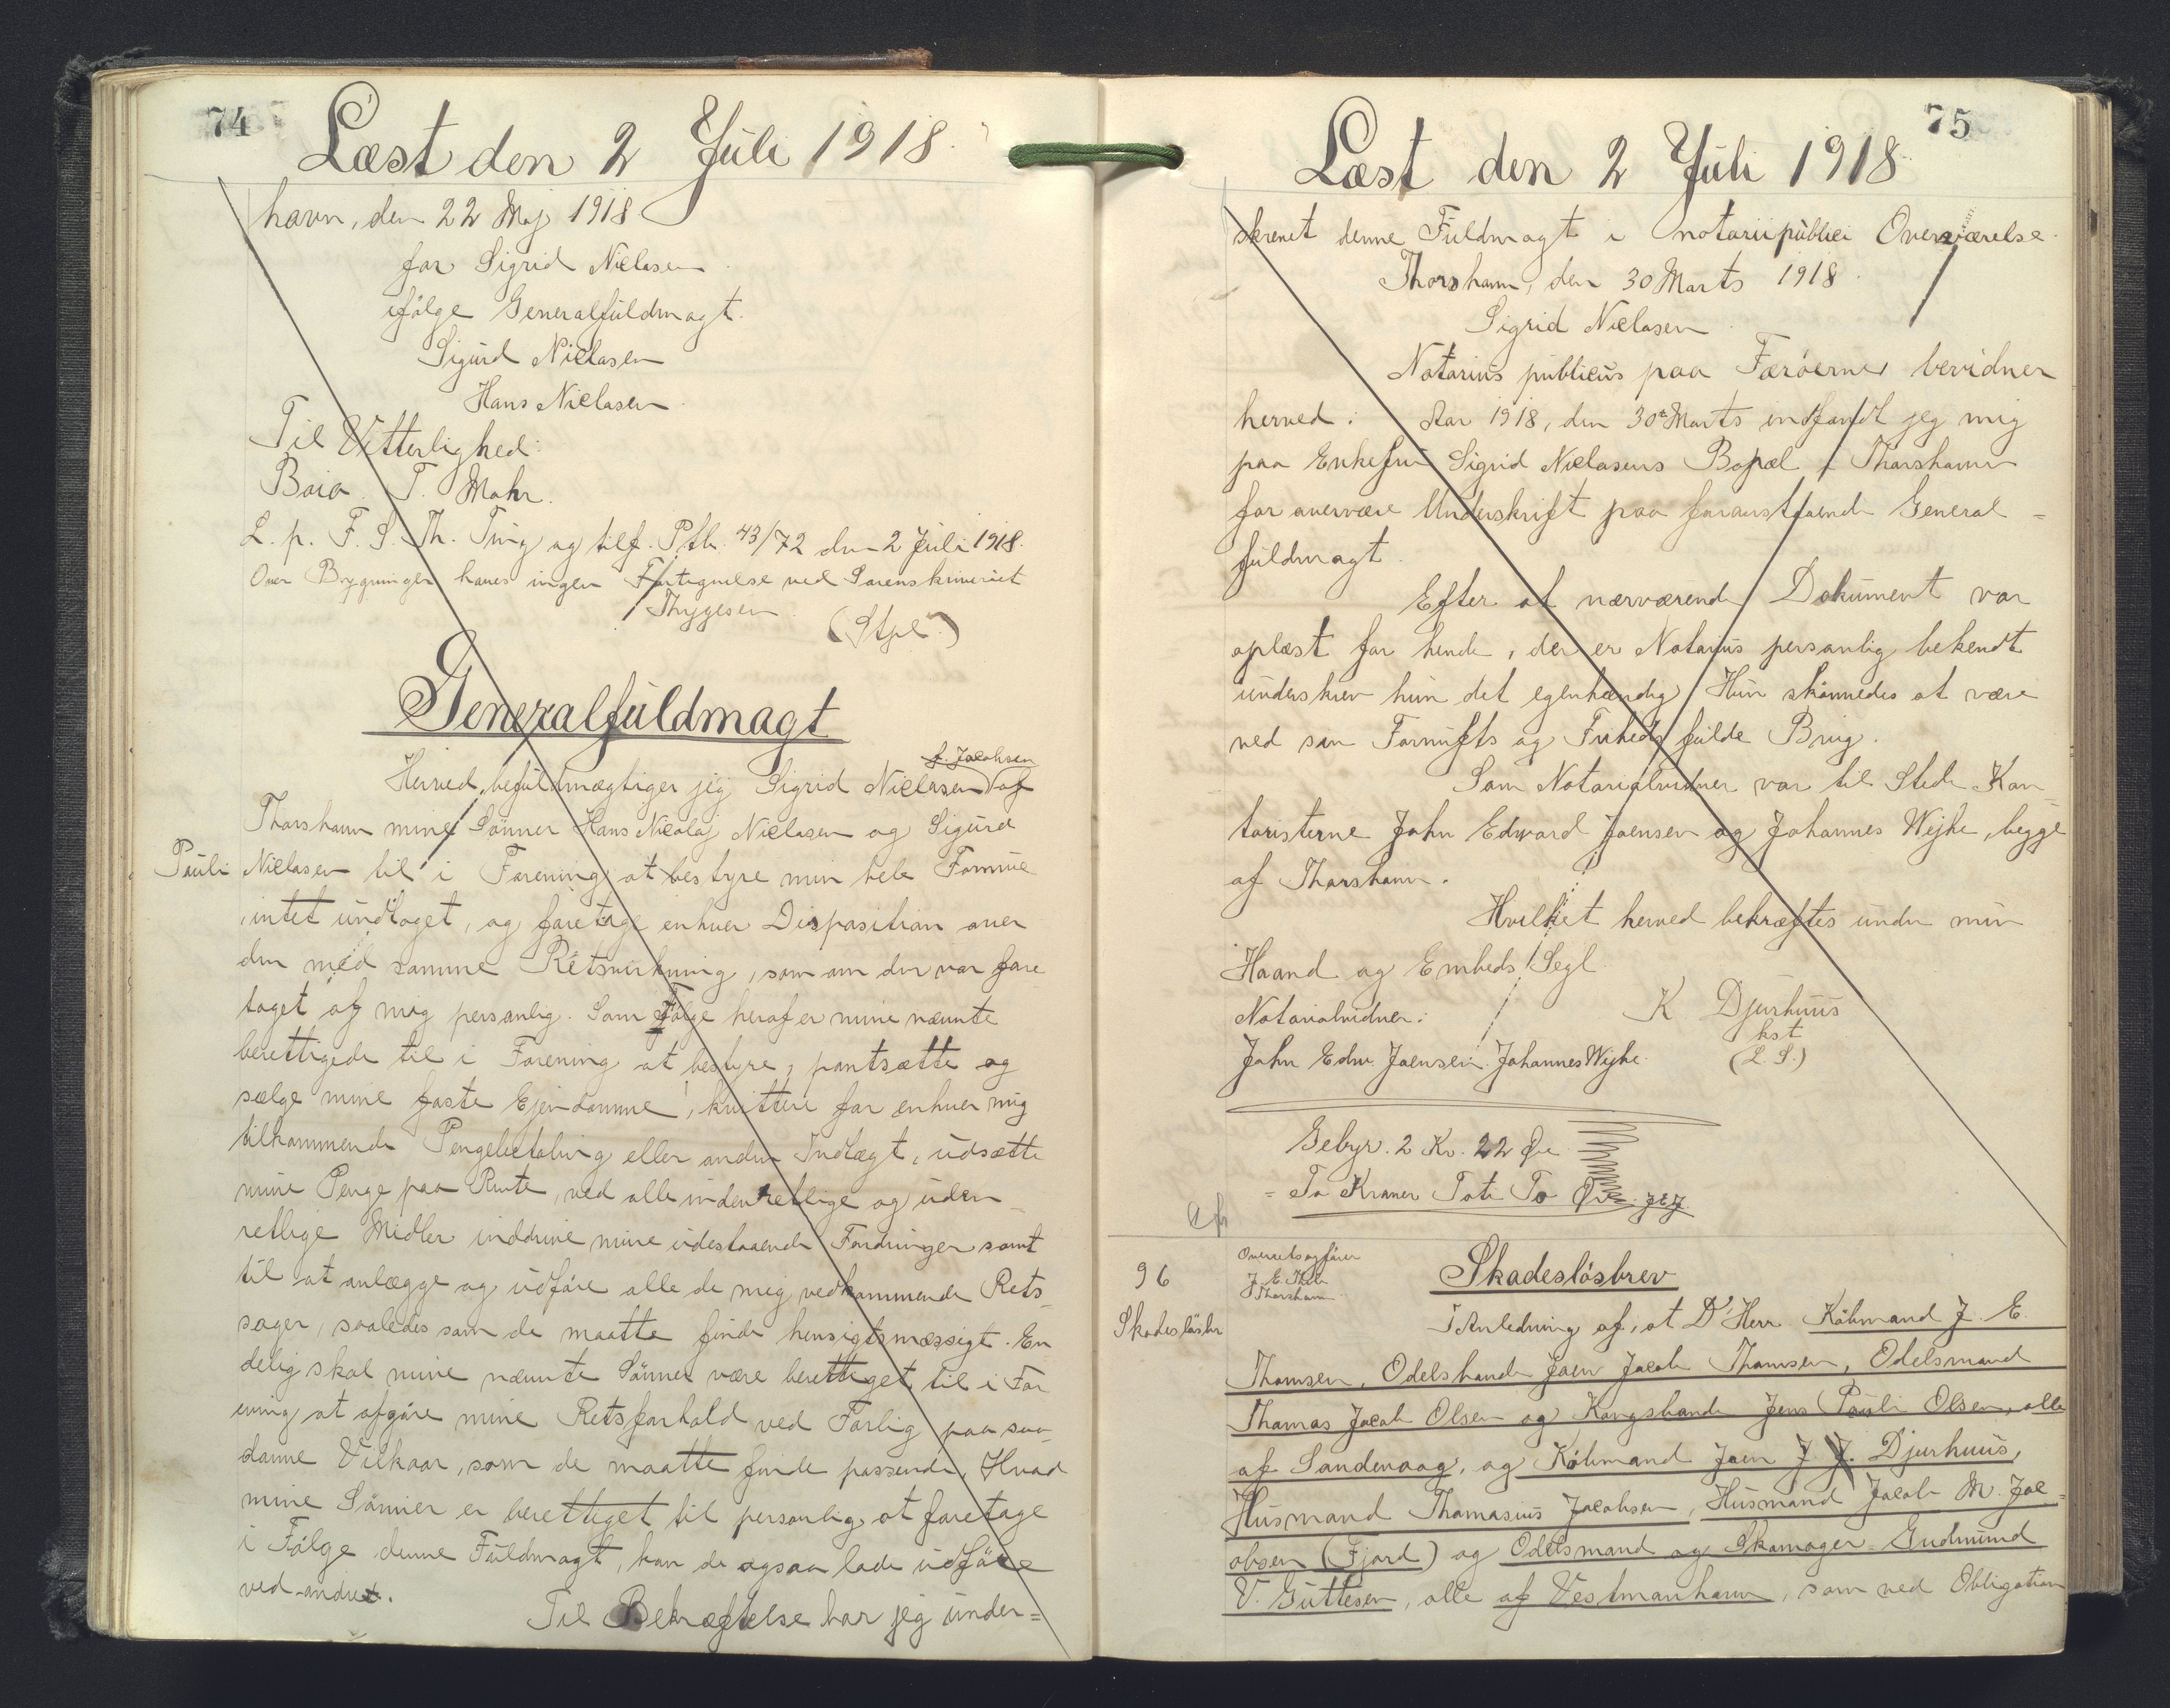 74
Læst den 2 Juli 1918.
havn, den 22 Maj 1918
for Sigrid Niclasen
ifølge Generalfuldmagt.
Sigurd Niclasen
Hans Niclasen
Til Vitterlighed:
T. Mohr.
L. p. F. S. Th. Ting og tilf. Ptb. 43/72 den 2 Juli 1918.
Over Bygninger haves ingen Fortegnelse ved Sorenskriveriet
Thygesen
(Stpl.)
Generalfuldmagt
f. Jacobsen
Herved befuldmægtiger jeg Sigrid Niclasen af
Thorshavn mine Sønner Hans Nicolaj Niclasen og Sigurd
Pauli Niclasen til i Forening at bestyre min hele Formue
intet undtaget, og foretage enhver Disposition over
den med samme Retsvirkning, som om den var fore
taget af mig personlig. Som Følge heraf er mine nævnte
berettigede til i Forening at bestyre, pantsætte og
sælge mine faste Ejendomme, kvittere for enhver mig
tilkommende Pengebetaling eller anden Indtægt, udsætte
mine Penge paa Rente, ved alle indenretlige og uden-
retlige Midler inddrive mine udestaaende Fordringer samt
til at anlægge og udføre alle de mig vedkommende Rets-
sager, saaledes som de maatte finde hensigtsmæssigt. En
delig skal mine nævnte Sønner være berettiget til i For
ening at afgøre mine Retsforhold ved Forlig paa saa-
danne Vilkaar, som de maatte finde passende. Hvad
mine Sønner er berettiget til personlig at foretage
i Følge denne Fuldmagt, kan de ogsaa lade udføre
ved andre.
Til Bekræftelse har jeg under=
75
Læst den 2 Juli 1918.
skrevet denne Fuldmagt i notarii publici Overværelse.
Thorshavn, den 30 Marts 1918.
Sigrid Niclasen
Notarius publicus paa Færøerne bevidner
herved: Aar 1918, den 30te Marts indfandt jeg mig
paa Enkefru Sigrid Niclasens Bopæl i Thorshavn
for overvære Underskrift paa foranstaaende General=
fuldmagt.
Efter at nærværende Dokument var
oplæst for hende, der er Notarius personlig bekendt
underskrev hun det egenhændig. Hun skønnedes at være
ved sin Fornufts og Friheds fulde Brug.
Som Notarialvidner var til Stede Kon-
toristerne John Edward Joensen og Johannes Wejhe, begge
af Thorshavn.
Hvilket herved bekræftes under min
Haand og Embeds Segl.
Notarialvidner: K Djurhuus
kst
John Edw. Joensen. Johannes Wejhe. (L. S.)
Gebyr. 2 Kr. 22 Øre
= To Kroner Toti To Øre.
96
Overretssagfører
Thorshavn
Skadesløsbrev
Skadesløsbr
I Anledning af, at D'Herr Købmand J. E.
Thomsen, Odelsbonde Joen Jacob Thomsen, Odelsmand
Thomas Jacob Olsen og Kongsbonde Jens Pauli Olsen, alle
af Sandevaag, og Købmand Joen J. J. Djurhuus,
Husmand Thomasius Jacobsen, Husmand Jacob M. Jac=
obsen (Fjord) og Odelsmand og Skomager Gudmund
V. Guttesen, alle af Vestmanhavn, som ved Obligation